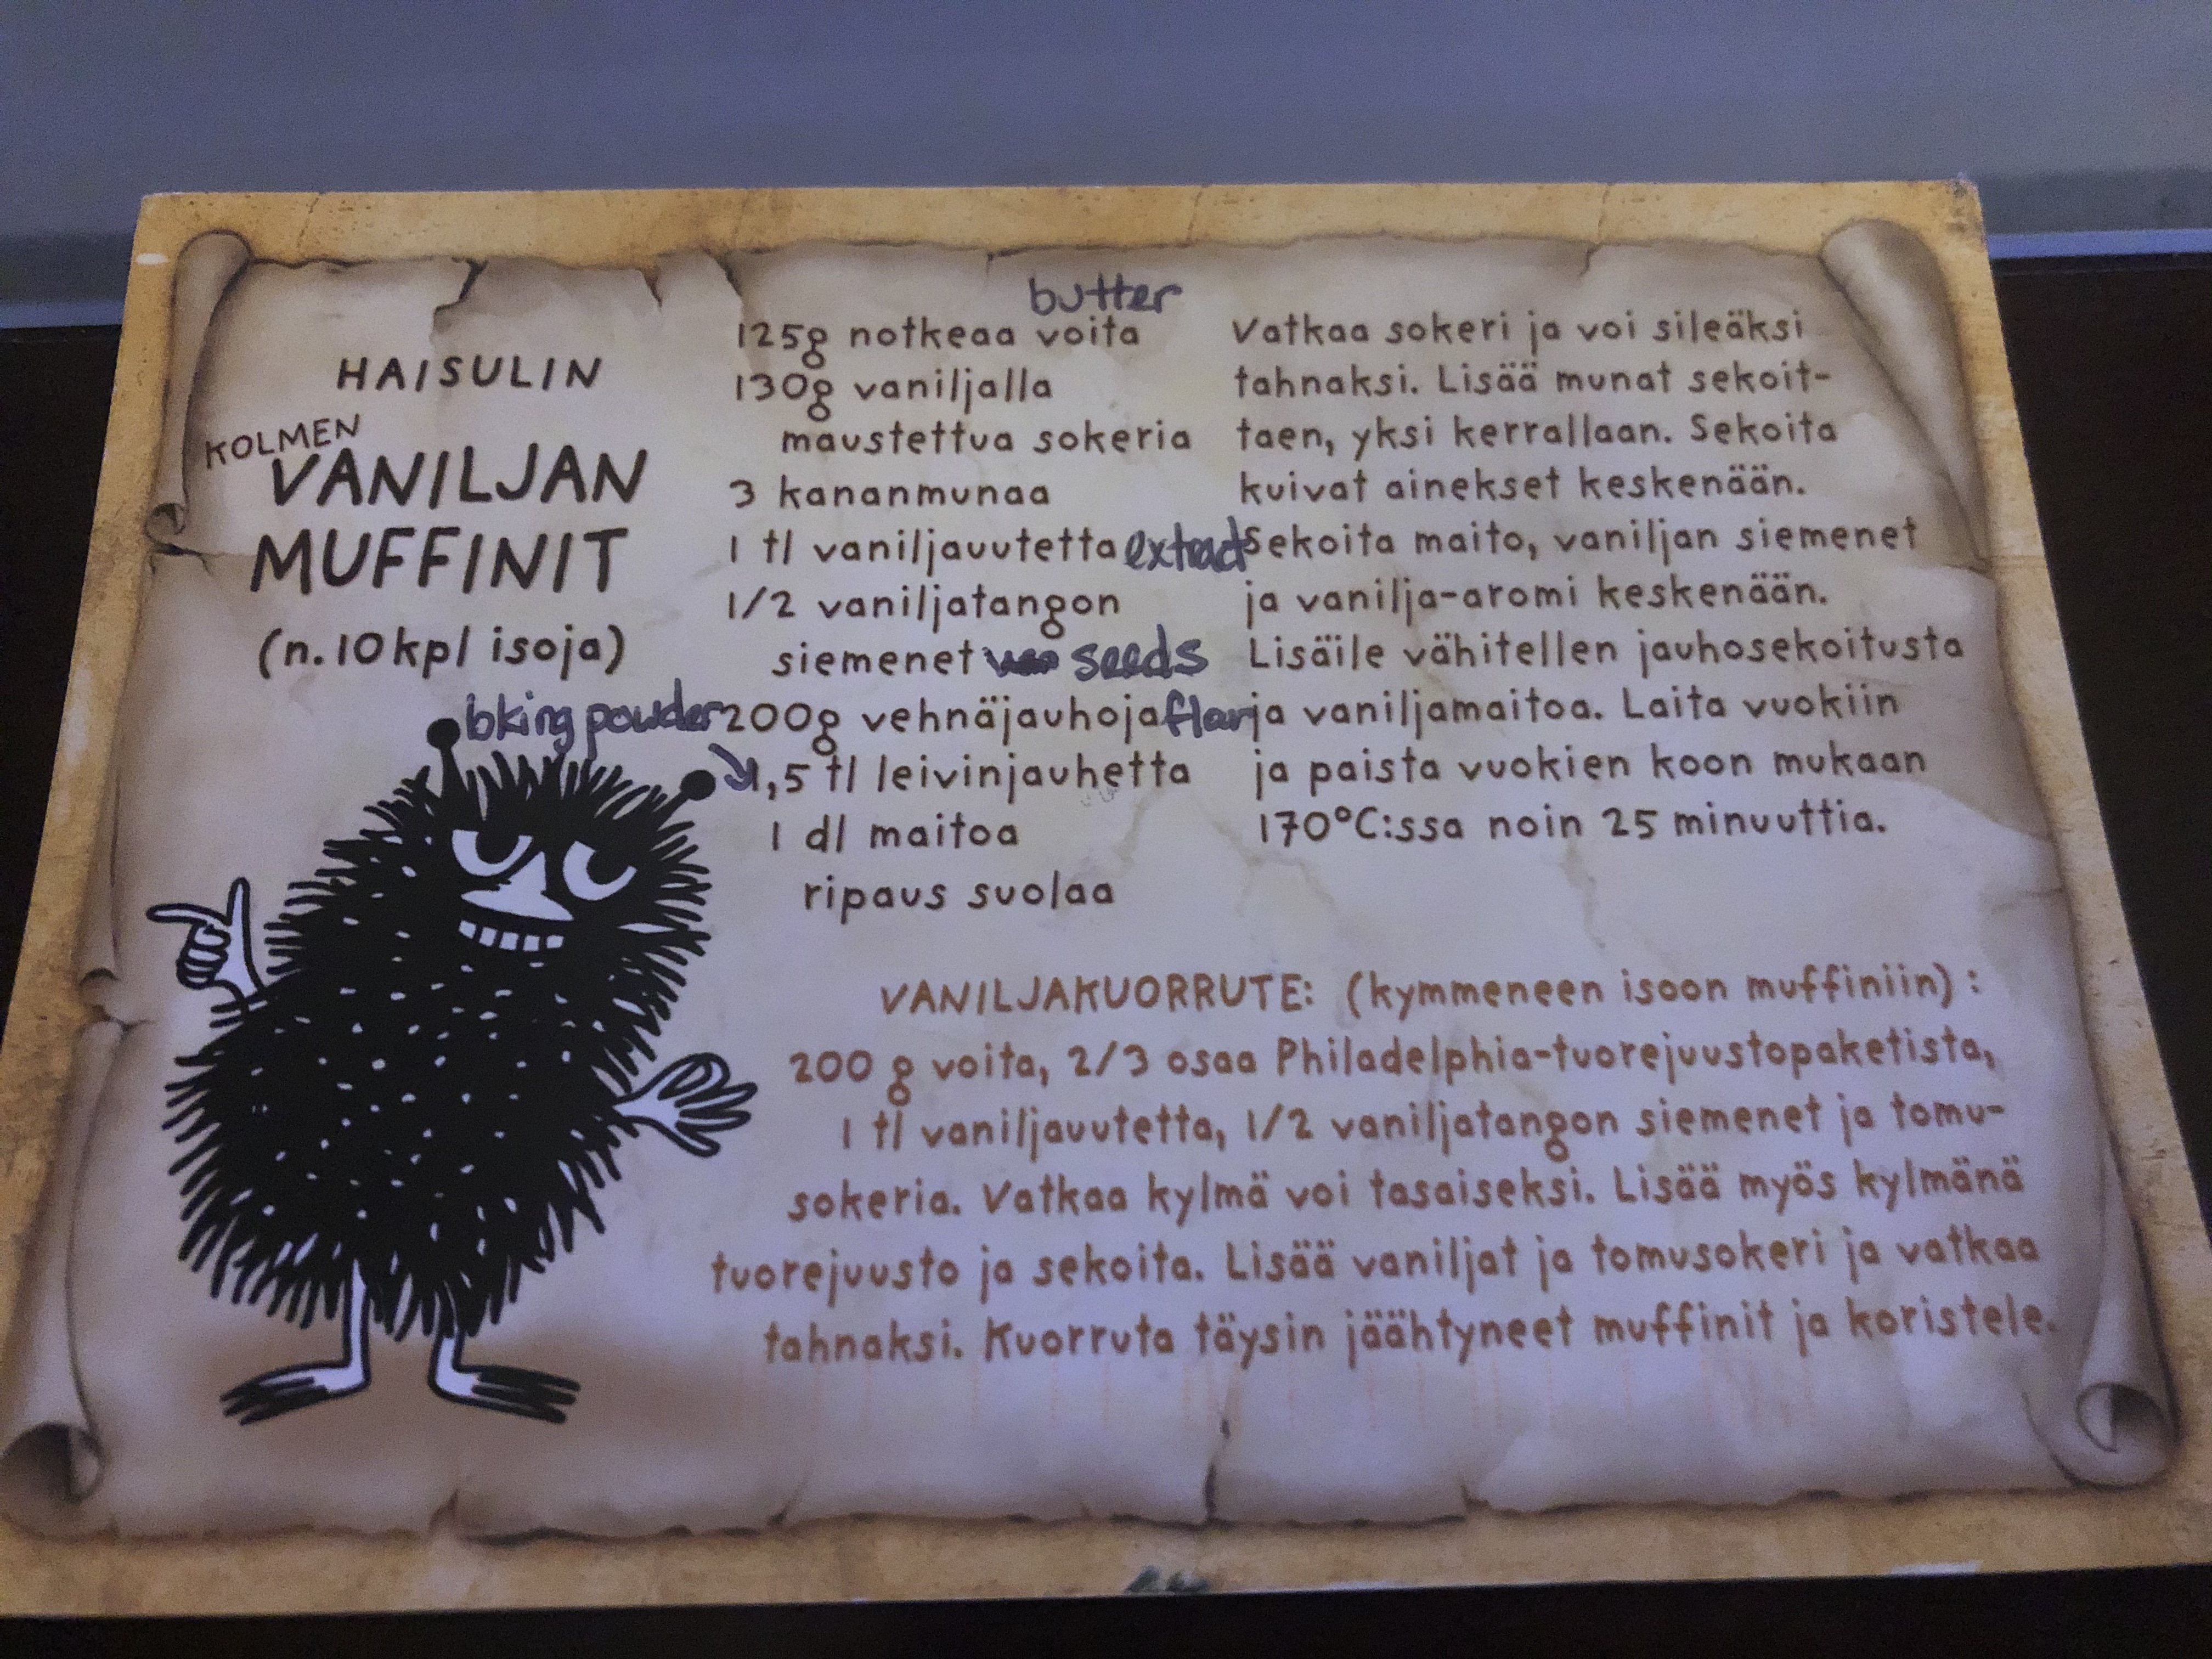 HAISULIN
KOLMEN
VANILJAN
MUFFINIT
(n. 10 kpl isoja)
butter
125g notkeaa voita
130g vaniljalla
maustettua sokeria
3 kananmunaa
1 tl vaniljauutetta extract
1/2 vaniljatangon
siemenet seeds
bking powder 200g vehnäjauhoja
1,5 tl leivinjauhetta
1 dl maitoa
ripaus suolaa
Vatkaa sokeri ja voi sileäksi
tahnaksi. Lisää munat sekoit-
taen, yksi kerrallaan. Sekoita
kuivat ainekset keskenään.
Sekoita maito, vaniljan siemenet
ja vanilja-aromi keskenään.
Lisäile vähitellen jauhosekoitusta
ja vaniljamaitoa. Laita vuokiin
ja paista vuokien koon mukaan
170°C:ssa noin 25 minuuttia.
VANILJAKUORRUTE: (kymmeneen isoon muffiniin) :
200 g voita, 2/3 osaa Philadelphia-tuorejuustopaketista,
1 tl vaniljauutetta, 1/2 vaniljatangon siemenet ja tomu-
sokeria. Vatkaa kylmä voi tasaiseksi. Lisää myös kylmänä
tuorejuusto ja sekoita. Lisää vaniljat ja tomusokeri ja vatkaa
tahnaksi. Kuorruta täysin jäähtyneet muffinit ja koristele.